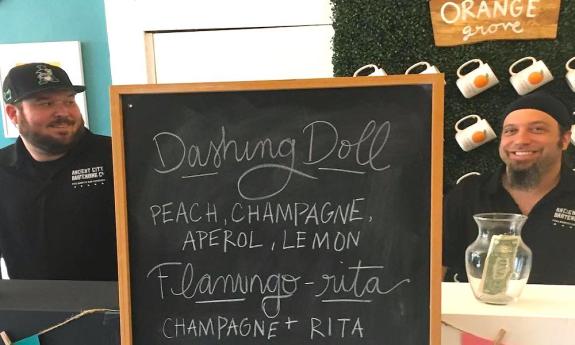 ORANGE
grove
Dashing Doll
PEACH, CHAMPAGNE,
APEROL, LEMON
Flamingo-rita
CHAMPAGNE + RITA
ANCIENT CITY
BARTENDING CO.